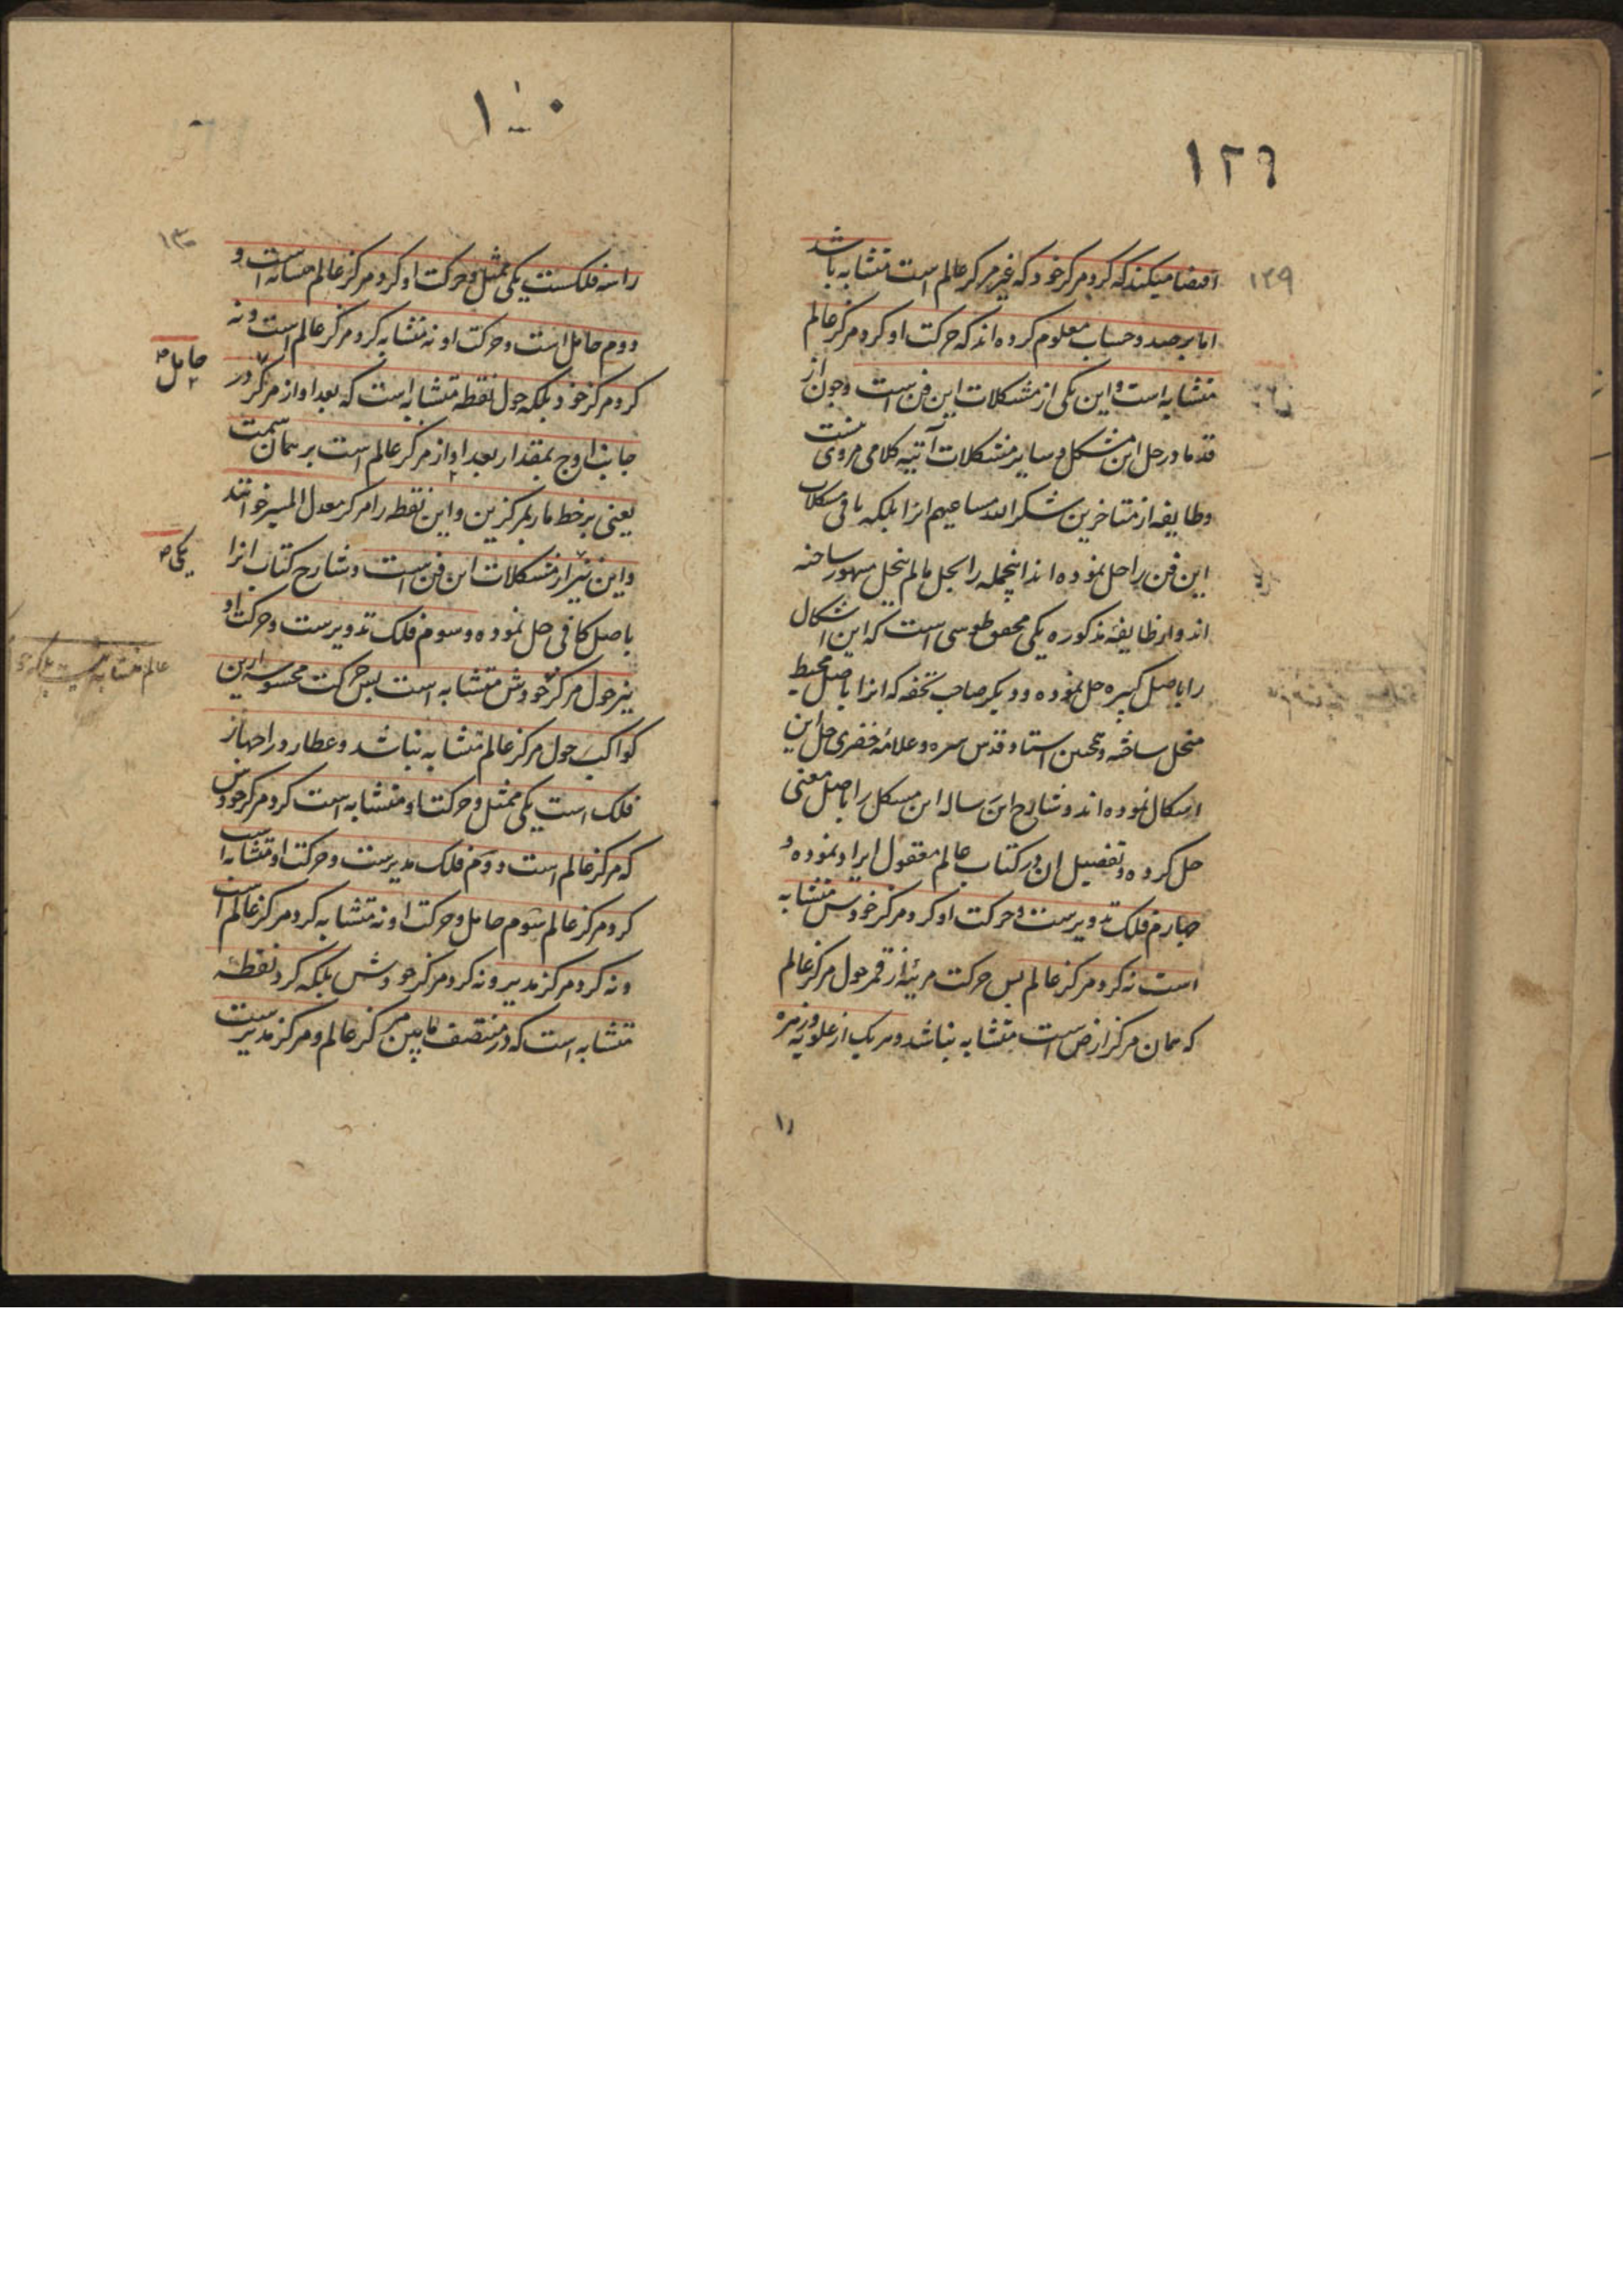 ۱۲۹
۱۲۹
اقتضا میکند که کرد مرکز خود که غیر مرکز عالم است متشابه باشد
اما برصد و حساب معلوم کرده اند که حرکت او کرد مرکز عالم
متشابه است و این یکی از مشکلات این فن است و چون از
قدما در حل این مشکل و سایر مشکلات آتیه کلامی مروی نیست
و طایفه از متاخرین شکر الله مساعیهم انرا بلکه باقی مشکلات
این فن را حل نموده اند انجمله را بحل مالم ینحل مشهور ساخته
اند و از طایفه مذکوره یکی محقق طوسی است که این اشکال
را باصل کبیره حل نموده و دیگر صاحب تحفه که انرا باصل محیط
منحل ساخته و همچنین استاد قدس سره و علامه خفری حل این
اشکال نموده اند و شارح این رساله این مشکل را باصل معنی
حل کرده و تفصیل ان در کتاب عالم معقول ایراد نموده و
چهارم فلک تدویرست و حرکت او کرد مرکز خودش متشابه
است نه کرد مرکز عالم پس حرکت مرئیه از قمر حول مرکز عالم
که همان مرکز ارض است متشابه نباشد و هر یک از علویه و زهره
را
۱۳۰
را سه فلکست یکی ممثل و حرکت او کرد مرکز عالم متشابه است و
دوم حامل است و حرکت او نه متشابه کرد مرکز عالم است و نه
کرد مرکز خود بلکه حول نقطه متشابه است که بعد او از مرکز در
حامل
جانب اوج بمقدار بعد او از مرکز عالم است بر همان سمت
یعنی بر خط مار بمرکزین و این نقطه را مرکز معدل المسیر خوانند
و این نیز از مشکلات این فن است و شارح کتاب انرا
یکی
باصل کافی حل نموده و سوم فلک تدویرست و حرکت او
نیز حول مرکز خودش متشابه است پس حرکت محسوسه ازین
عالم متشابه نیست بلکه
کواکب حول مرکز عالم متشابه نباشد و عطارد را چهار
فلک است یکی ممثل و حرکت او متشابه است کرد مرکز خودش
که مرکز عالم است و دوم فلک مدیرست و حرکت او متشابه است
کرد مرکز عالم سوم حامل و حرکت او نه متشابه کرد مرکز عالم است
و نه کرد مرکز مدیر و نه کرد مرکز خودش بلکه کرد نقطه
متشابه است که در منتصف مابین مرکز عالم و مرکز مدیرست